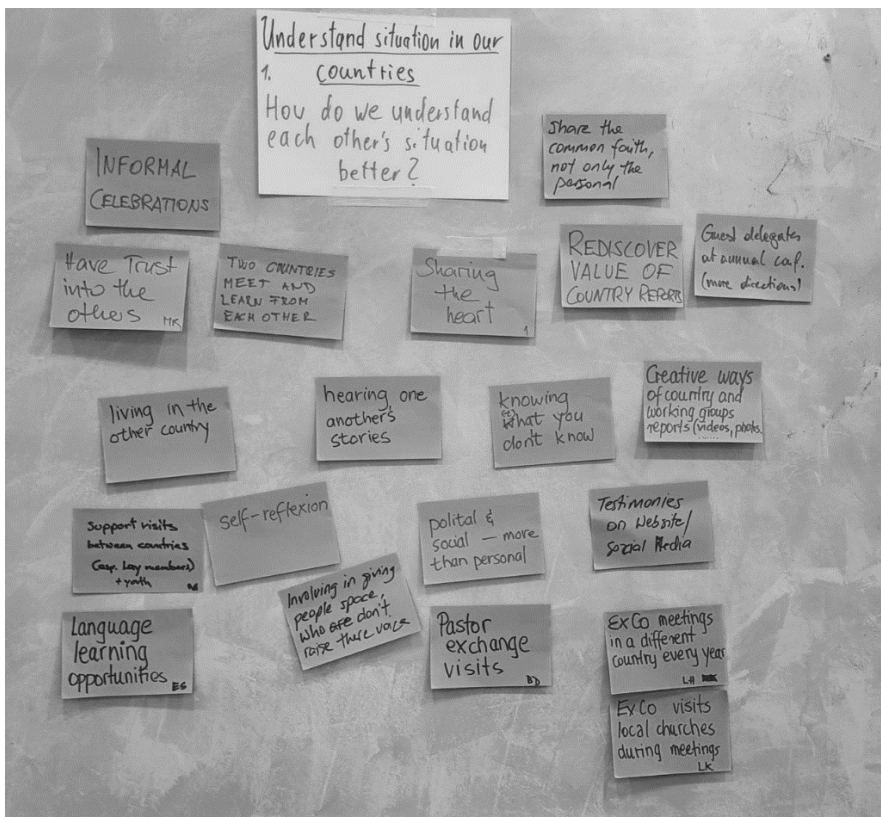 Understand situation in our
1. countries
How do we understand
each other's situation
better?
Share the
common faith,
not only the
personal
INFORMAL
CELEBRATIONS
Have Trust
into the
others
MK
TWO COUNTRIES
MEET AND
LEARN FROM
EACH OTHER
Sharing
the
heart
1
REDISCOVER
VALUE OF
COUNTRY REPORTS
Guest delegates
at annual conf.
(more directions)
living in the
other country
hearing one
another's
stories
knowing
what you
don't know
Creative ways
of country and
working groups
reports (videos, photos
Support visits
between countries
(esp. Lay members)
+ youth
self-reflexion
polital &
social — more
than personal
Testimonies
on Website/
Social Media
Involving in giving
people space,
who are don't
raise there voice
Language
learning
opportunities
ES
Pastor
exchange
visits
BD
ExCo meetings
in a different
country every year
LH
ExCo visits
local churches
during meetings
LK